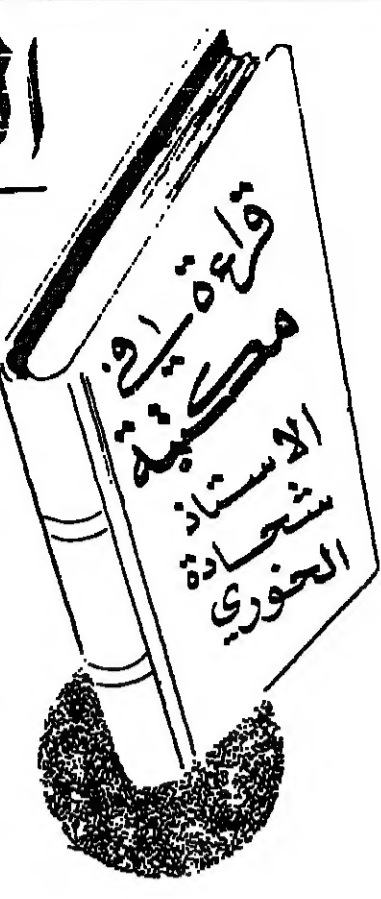 قراءة في
مكتبة
الاستاذ
شحادة
الخوري